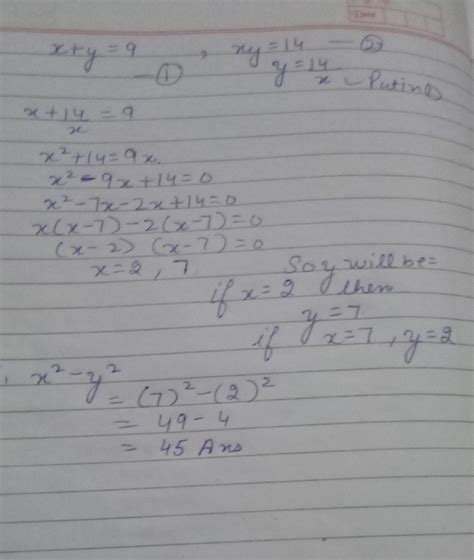 Date
x+y=9 —①, xy=14 —②
y=14/x Put in ①
x+14/x=9
x²+14=9x
x²-9x+14=0
x²-7x-2x+14=0
x(x-7)-2(x-7)=0
(x-2) (x-7)=0
x=2, 7
So y will be=
if x=2 then
y=7
if x=7, y=2
x²-y²
=(7)²-(2)²
= 49-4
= 45 Ans